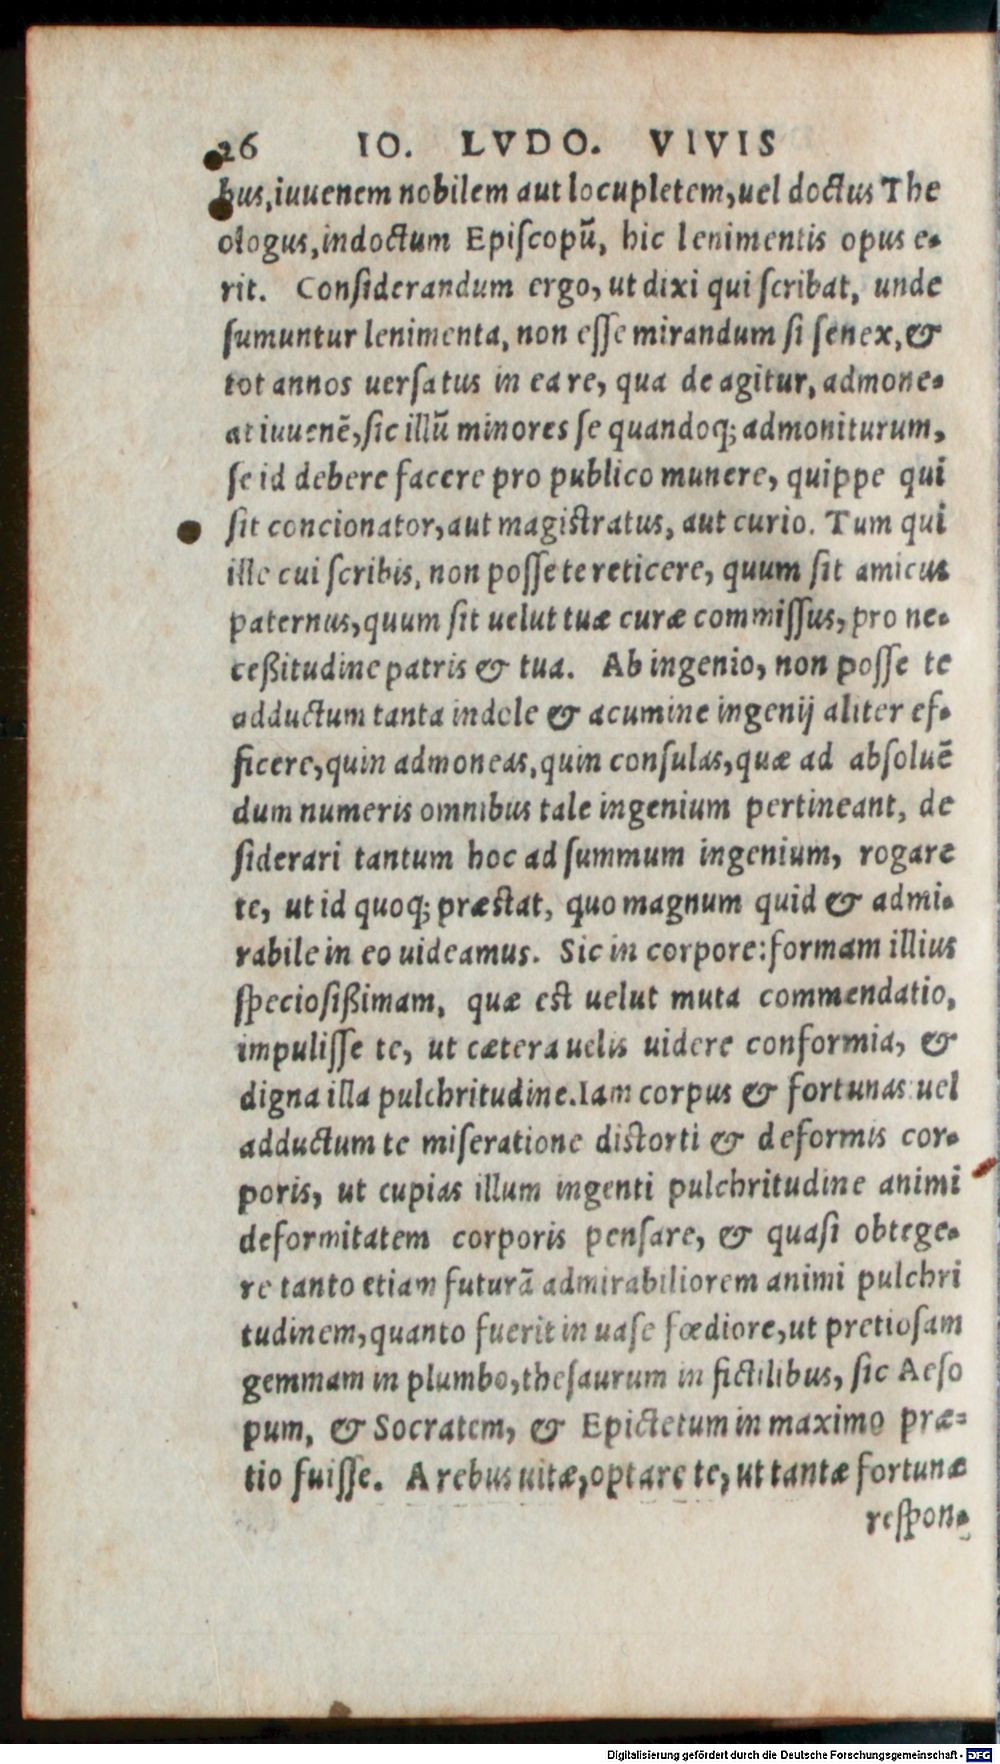 26 IO. LVDO. VIVIS
bus, iuuenem nobilem aut locupletem, uel doctus The
ologus, indoctum Episcopũ, hic lenimentis opus e-
rit. Considerandum ergo, ut dixi qui scribat, unde
sumuntur lenimenta, non esse mirandum si senex, &
tot annos uersatus in ea re, qua de agitur, admone-
at iuuenẽ, sic illũ minores se quandoq; admoniturum,
se id debere facere pro publico munere, quippe qui
sit concionator, aut magistratus, aut curio. Tum qui
ille cui scribis, non posse te reticere, quum sit amicus
paternus, quum sit uelut tuæ curæ commissus, pro ne-
ceßitudine patris & tua. Ab ingenio, non posse te
adductum tanta indole & acumine ingenij aliter ef-
ficere, quin admoneas, quin consulas, quæ ad absoluẽ
dum numeris omnibus tale ingenium pertineant, de
siderari tantum hoc ad summum ingenium, rogare
te, ut id quoq; præstat, quo magnum quid & admi-
rabile in eo uideamus. Sic in corpore: formam illius
speciosißimam, quæ est uelut muta commendatio,
impulisse te, ut cætera uelis uidere conformia, &
digna illa pulchritudine. Iam corpus & fortunas uel
adductum te miseratione distorti & deformis cor-
poris, ut cupias illum ingenti pulchritudine animi
deformitatem corporis pensare, & quasi obtege-
re tanto etiam futurã admirabiliorem animi pulchri
tudinem, quanto fuerit in uase fœdiore, ut pretiosam
gemmam in plumbo, thesaurum in fictilibus, sic Aeso
pum, & Socratem, & Epictetum in maximo præ-
tio fuisse. A rebus uitæ, optare te, ut tantæ fortunæ
respon-
Digitalisierung gefördert durch die Deutsche Forschungsgemeinschaft - DFG